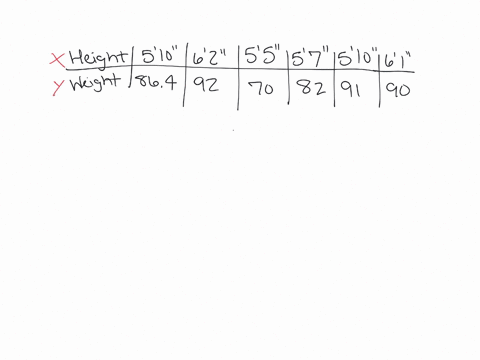 x Height 5'10" 6'2" 5'5" 5'7" 5'10" 6'1"
y Weight 86.4 92 70 82 91 90